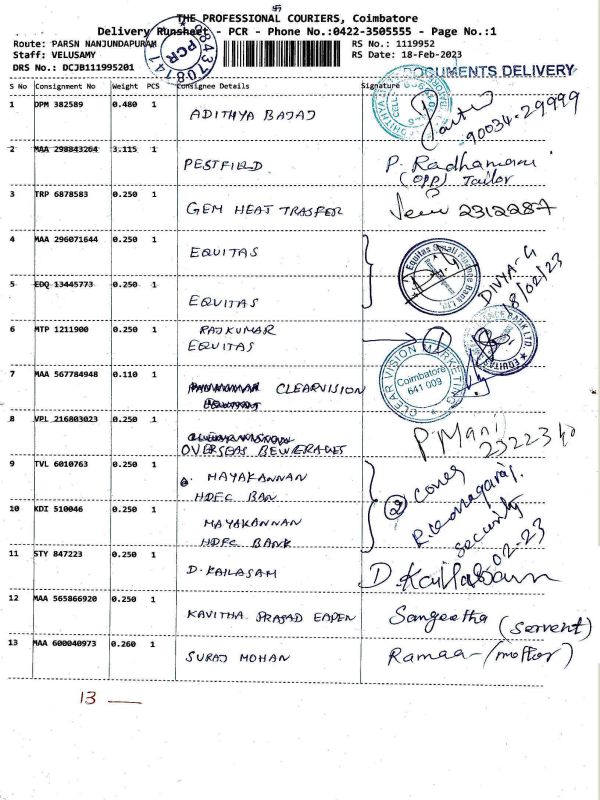 THE PROFESSIONAL COURIERS, Coimbatore
Delivery Runsheet - PCR - Phone No.:0422-3505555 - Page No.:1
Route: PARSN NANJUNDAPURAM
RS No.: 1119952
Staff: VELUSAMY
RS Date: 18-Feb-2023
DRS No.: DCJB111995201
PCR
9843708141
DOCUMENTS DELIVERY
S No Consignment No Weight PCS Consignee Details Signature
1 DPM 382589 0.480 1 ADITHYA BAJAJ 90034-29999
2 MAA 298843264 3.115 1 PESTFIELD P. Radhamani
(opp) Tailor
3 TRP 6878583 0.250 1 GEM HEAT TRASFER 2312287
4 MAA 296071644 0.250 1 EQUITAS
Equitas Small Finance Bank Ltd
DIVYA-G
18/02/23
5 EDQ 13445773 0.250 1 EQUITAS
6 MTP 1211900 0.250 1 RAJKUMAR
EQUITAS
CLEAR VISION MARKETING
Coimbatore
641 009
7 MAA 567784948 0.110 1 CLEARVISION
8 VPL 216803023 0.250 1
OVERSEAS BEWERAGES P Mani
9 TVL 6010763 0.250 1 MAYAKANNAN
HDFC BAN
10 KDI 510046 0.250 1 MAYAKANNAN
HDFC BANK
Security
02-23
11 STY 847223 0.250 1 D. KAILASAM D. Kailasam
12 MAA 565866920 0.250 1 KAVITHA PRASAD EAPEN Sangeetha (servent)
13 MAA 600040973 0.260 1 SURAJ MOHAN Ramaa - (mottor)
13 —